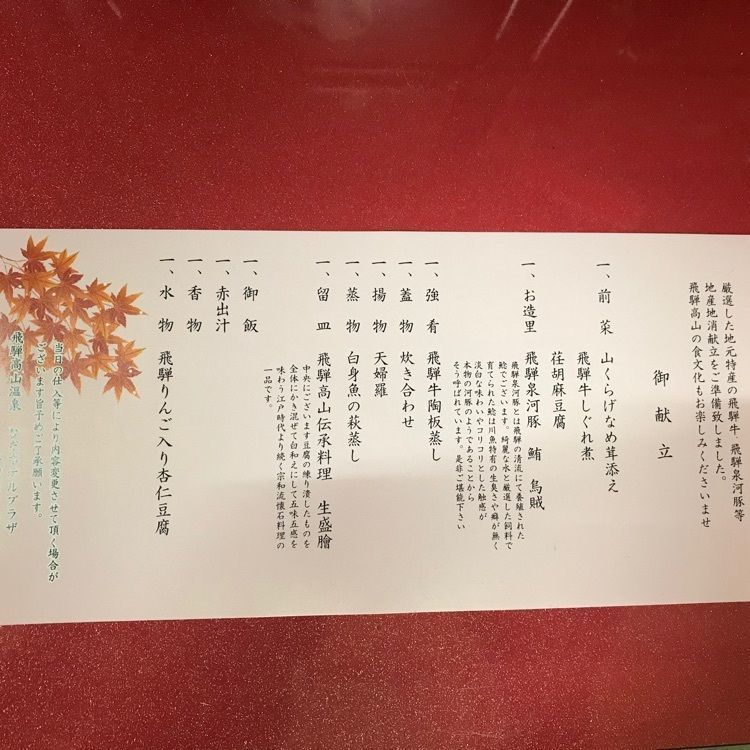 厳選した地元特産の飛騨牛・飛騨泉河豚等
地産地消献立をご準備致しました。
飛騨高山の食文化もお楽しみくださいませ
御献立
一、前菜 山くらげなめ茸添え
飛騨牛しぐれ煮
荏胡麻豆腐
一、お造里 飛騨泉河豚 鮪 烏賊
飛騨泉河豚とは飛騨の清流にて養殖された
鯰でございます。綺麗な水と厳選した飼料で
育てられた鯰は川魚特有の生臭さや癖が無く
淡白な味わいやコリコリとした触感が
本物の河豚のようであることから
そう呼ばれています。是非ご堪能下さい
一、強肴 飛騨牛陶板蒸し
一、蓋物 炊き合わせ
一、揚物 天婦羅
一、蒸物 白身魚の萩蒸し
一、留皿 飛騨高山伝承料理 生盛膾
中央にございます豆腐の練り潰したものを
全体にかき混ぜて白和えにして五味五感を
味わう江戸時代より続く宗和流懐石料理の
一品です。
一、御飯
一、赤出汁
一、香物
一、水物 飛騨りんご入り杏仁豆腐
当日の仕入等により内容変更させて頂く場合が
ございます旨予めご了承願います。
飛騨高山温泉 ひだホテルプラザ